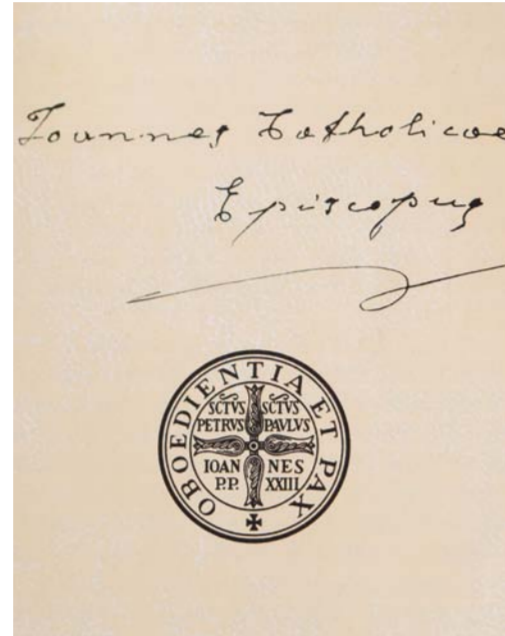 Ioannes Catholicae
Episcopus
OBOEDIENTIA ET PAX
SCTVS SCTVS
PETRVS PAVLVS
IOAN NES
P.P. XXIII